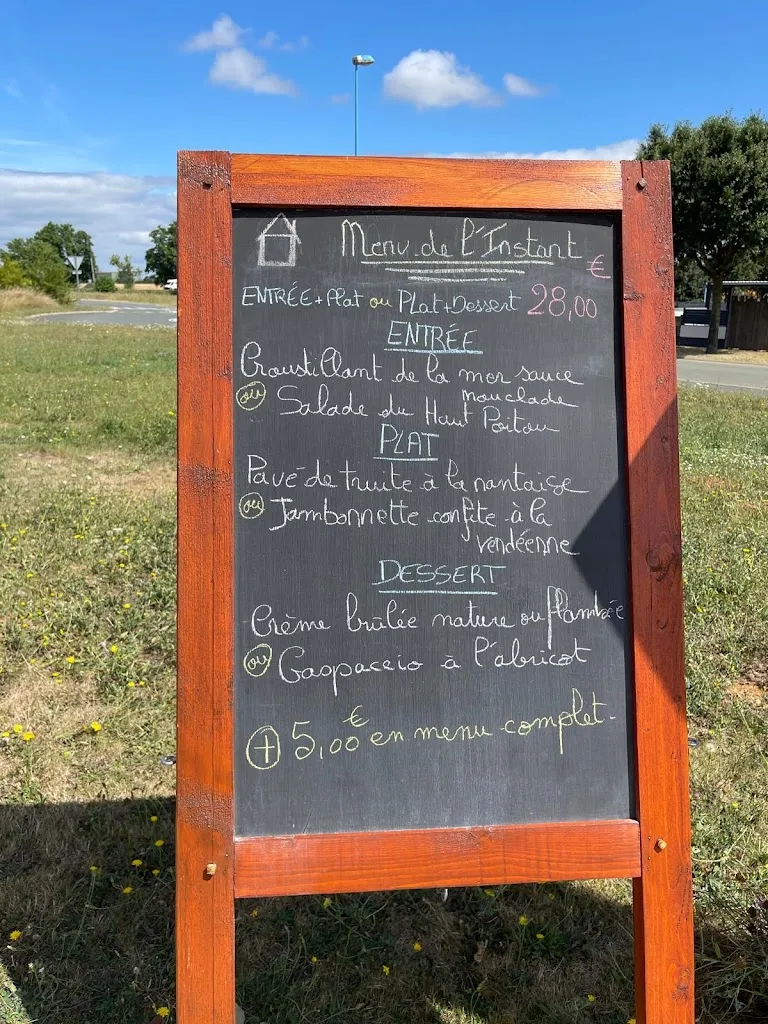 Menu de l'Instant
€
ENTRÉE + Plat ou Plat + Dessert 28,00
ENTRÉE
Croustillant de la mer sauce
mouclade
ou Salade du Haut Poitou
PLAT
Pavé de truite à la nantaise
ou Jambonnette confite à la
vendéenne
DESSERT
Crème brûlée nature ou flambée
ou Gaspaccio à l'abricot
+ 5,00€ en menu complet.